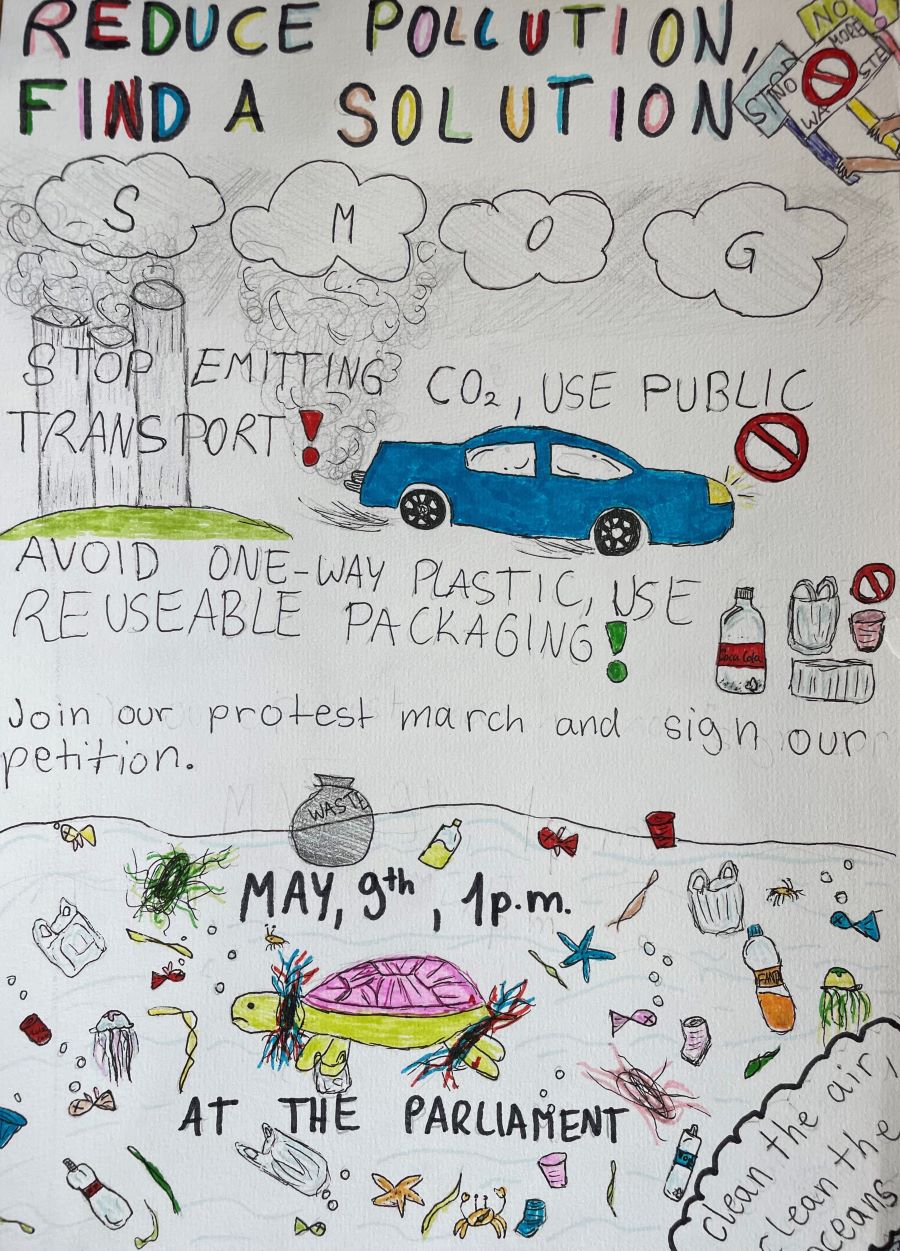 REDUCE POLLUTION,
FIND A SOLUTION
STOP
NO
NO MORE
WASTE
S M O G
STOP EMITTING CO₂, USE PUBLIC
TRANSPORT!
AVOID ONE-WAY PLASTIC, USE
REUSEABLE PACKAGING!
Coca Cola
Join our protest march and sign our
petition.
WASTE
MAY, 9th, 1p.m.
FANTA
AT THE PARLIAMENT
clean the air,
clean the
oceans